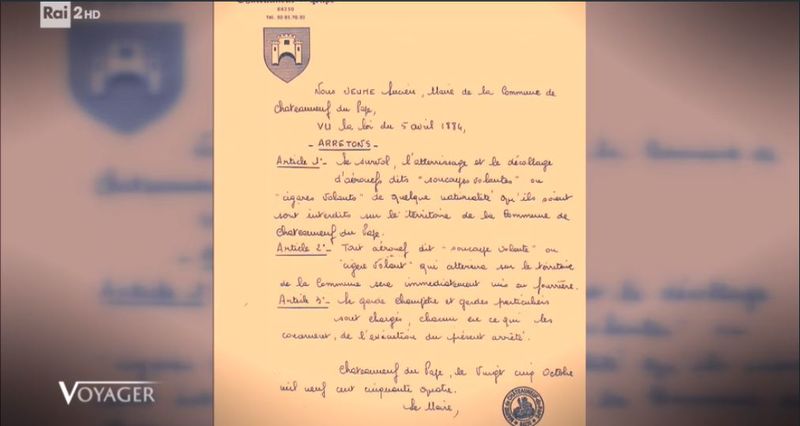 Rai 2HD
84230
Nous JEUME Lucien, Maire de la Commune de
Chateauneuf du Pape,
VU la loi du 5 avril 1884,
- ARRETONS -
Article 1°- Le survol, l'atterrissage et le décollage
d'aéronefs dits "soucoupes volantes" ou
"cigares volants" de quelque nationalité qu'ils soient
sont interdits sur le territoire de la Commune de
Chateauneuf du Pape.
Article 2°- Tout aéronef dit "soucoupe volante" ou
"cigare volant" qui atterrira sur le territoire
de la Commune sera immédiatement mis en fourrière.
Article 3°- Le garde champêtre et gardes particuliers
sont chargés, chacun en ce qui les
concernent, de l'exécution du présent arrêté.
Chateauneuf du Pape, le Vingt cinq Octobre
mil neuf cent cinquante quatre.
Le Maire,
VOYAGER